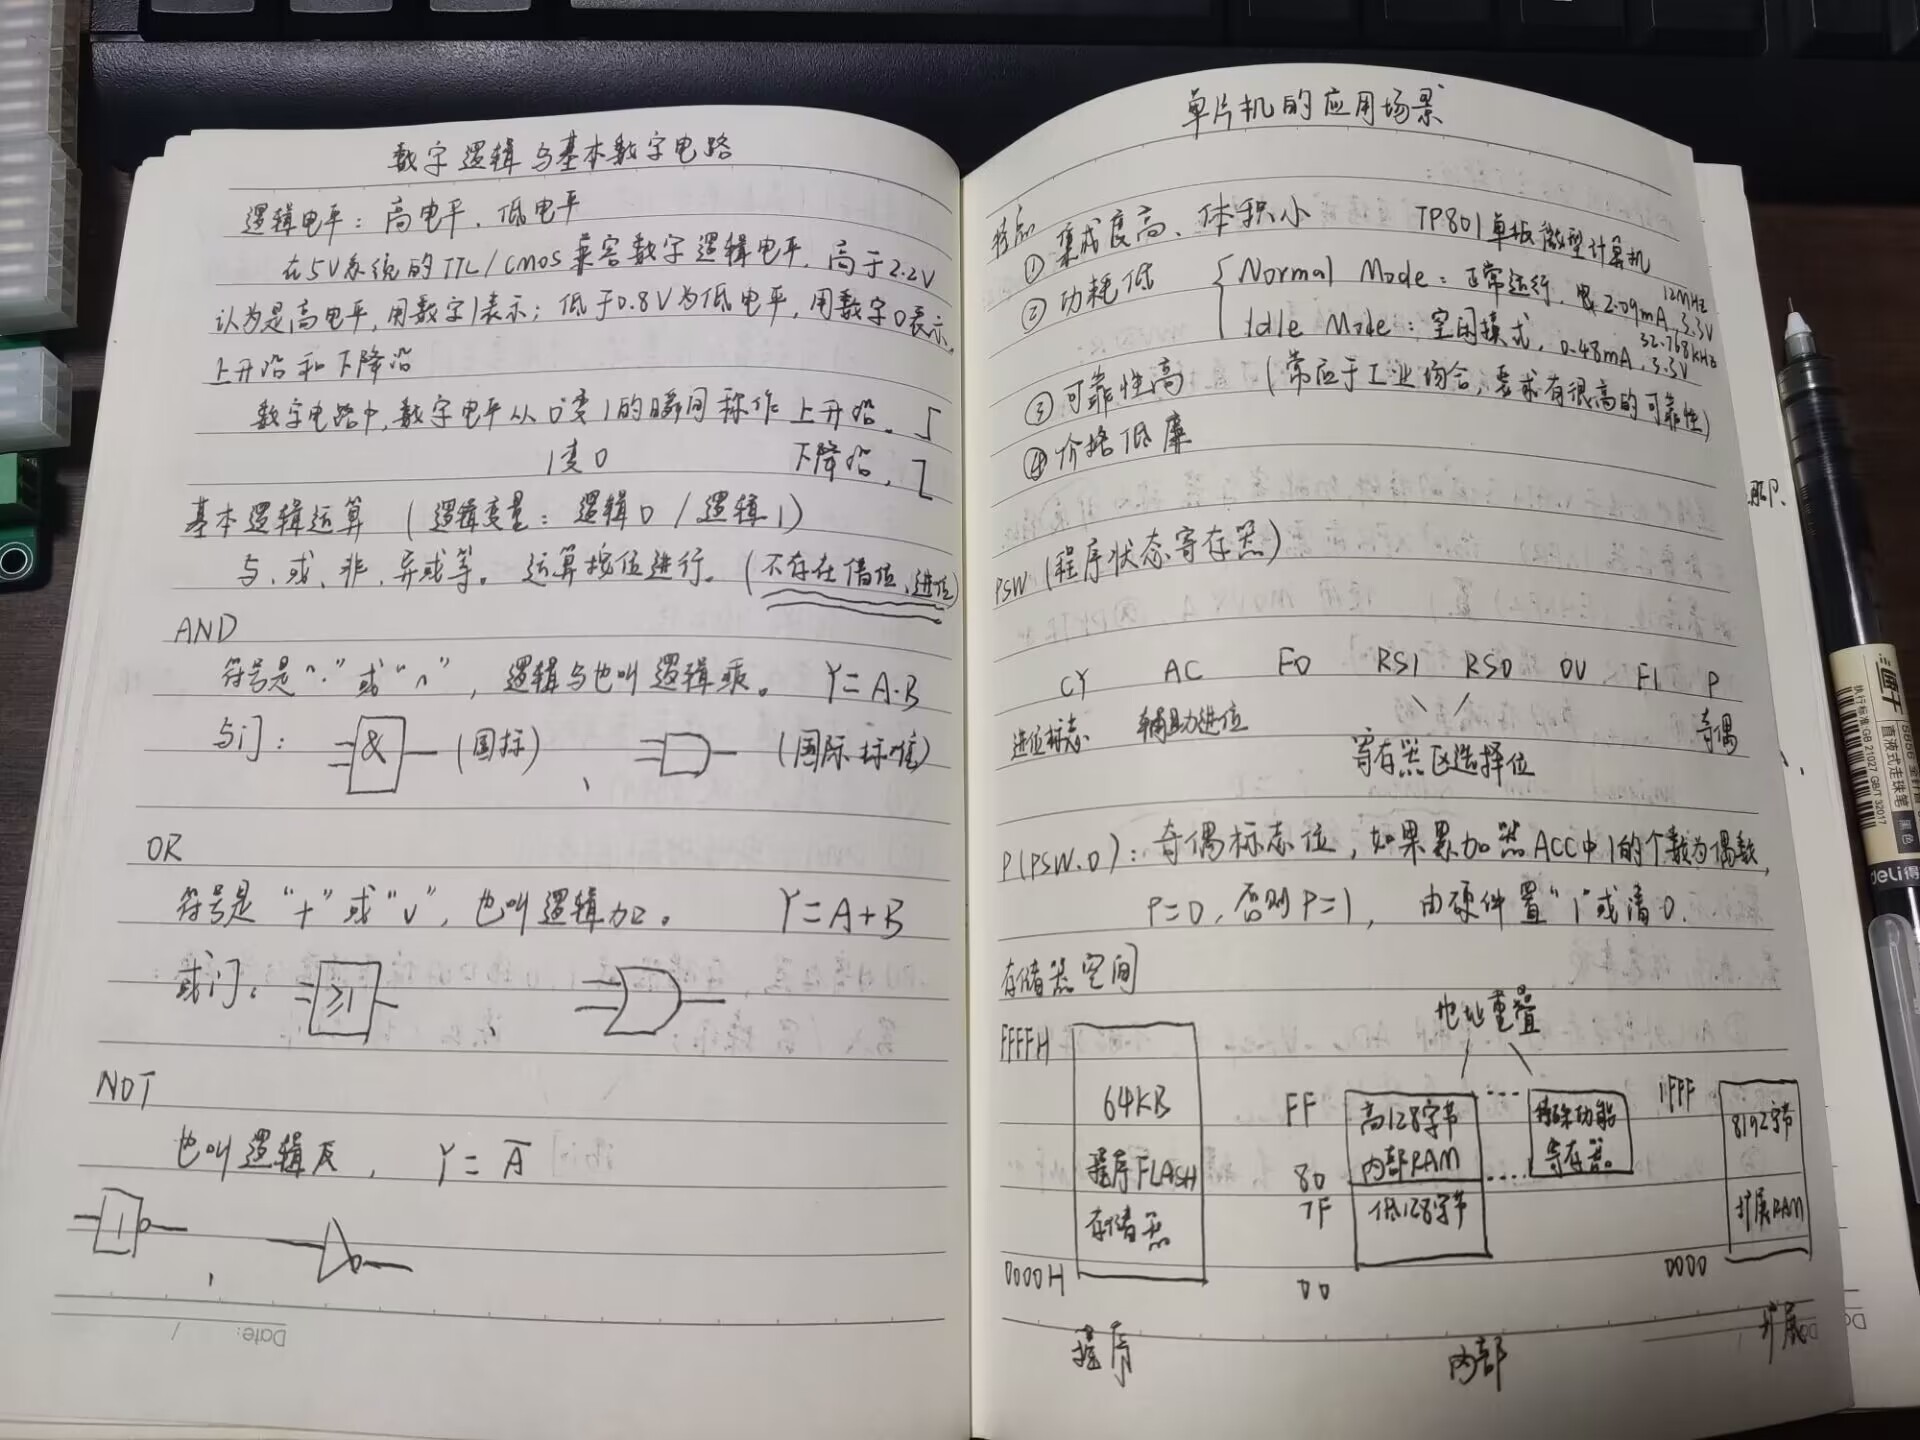 数字逻辑与基本数字电路
逻辑电平：高电平、低电平
在5V系统的TTL/CMOS兼容数字逻辑电平，高于2.2V
认为是高电平，用数字1表示；低于0.8V为低电平，用数字0表示。
上升沿和下降沿
数字电路中，数字电平从0变1的瞬间称作上升沿。
1变0 下降沿。
基本逻辑运算（逻辑变量：逻辑0/逻辑1）
与、或、非、异或等。运算按位进行。（不存在借位、进位）
AND
符号是"·"或"∩"，逻辑与也叫逻辑乘。 Y=A·B
与门： & （国标） （国际标准）
OR
符号是"+"或"∨"，也叫逻辑加。 Y=A+B
或门： ≥1
NOT
也叫逻辑反， Y=A̅
1
Date:
单片机的应用场景
特点
① 集成度高、体积小 TP801单板微型计算机
② 功耗低 Normal Mode：正常运行， 2.09mA, 3.3V 12MHz
Idle Mode：空闲模式，0.48mA, 3.3V 32.768kHz
③ 可靠性高 （常应于工业场合，要求有很高的可靠性）
④ 价格低廉
PSW（程序状态寄存器）
CY AC F0 RS1 RS0 OV F1 P
进位标志 辅助进位 寄存器区选择位 奇偶
P(PSW.0)：奇偶标志位，如果累加器ACC中1的个数为偶数，
P=0，否则P=1， 由硬件置"1"或清0.
存储器空间
地址重叠
FFFFH
64KB
程序FLASH
存储器
0000H
FF
高128字节
内部RAM
80
7F
低128字节
00
特殊功能
寄存器。
1FFF
8192字节
扩展RAM
0000
程序 内部 扩展
执行标准:GB 21027 GB/T 32017
直液式走珠笔
黑色
deli得